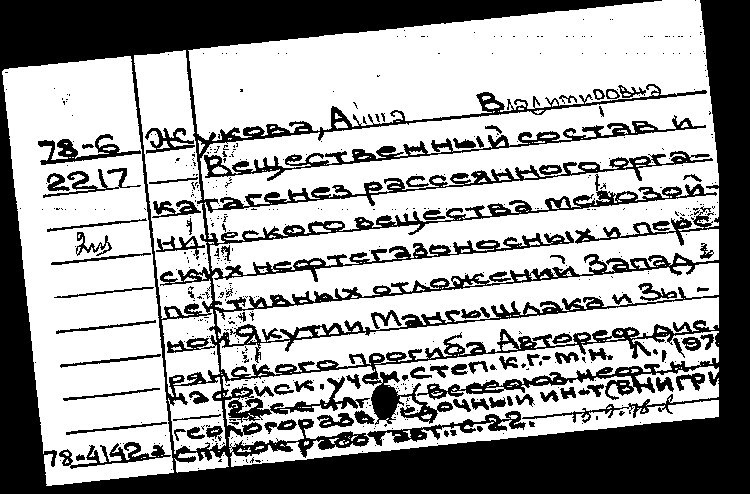 Жукова, Анна Владимировна
78-6 Вещественный состав и
2217 катагенез рассеянного орга=
нического вещества мезозой-
ских нефтегазоносных и перс-
пективных отложений Запад-
ной Якутии, Мангышлака и Зы-
рянского прогиба. Автореф. дис.
на соиск. учен. степ. к.г.-м.н. Л., 1978
22 с. с ил. (Всесоюз. нефт. н.-и.
геологоразведочный ин-т (ВНИГРИ
Список работ авт.: с. 22. 13.9.78
78-4142